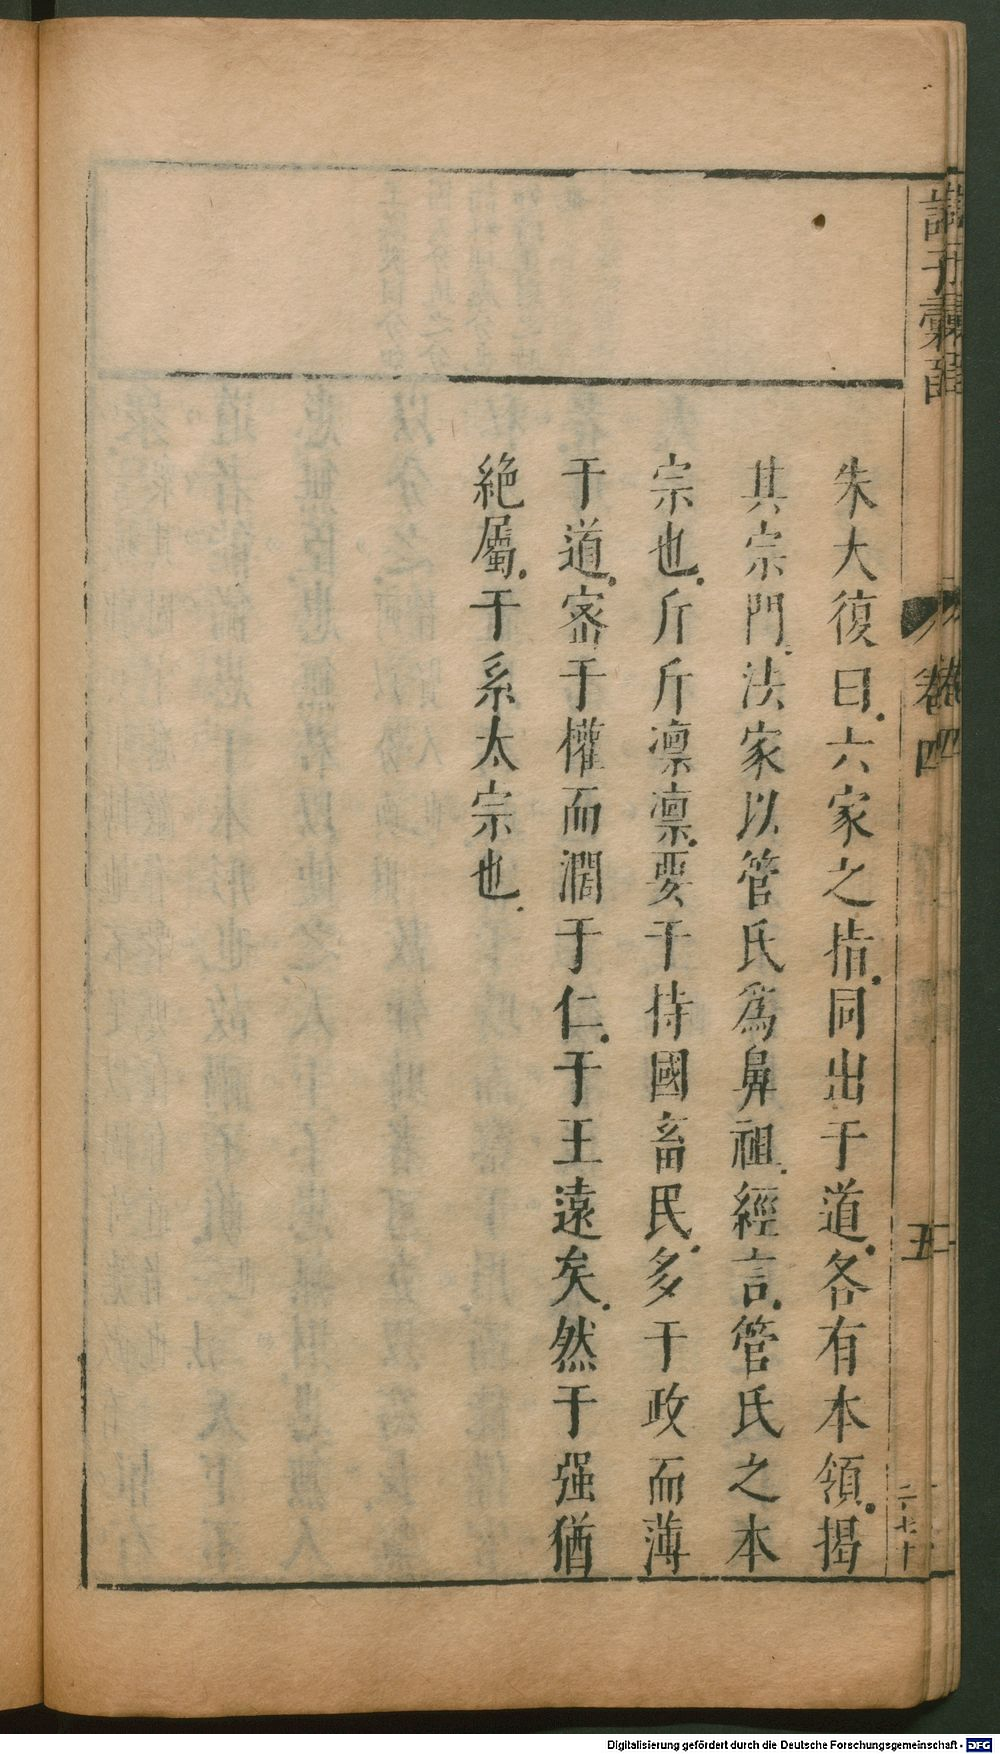 朱大復曰六家之指同出于道各有本領揭
其宗門法家以管氏爲鼻祖經言管氏之本
宗也斤斤凛凛要于持國畜民多于政而薄
于道密于權而濶于仁于王遠矣然于强猶
絕屬于系太宗也
諸子彙函
卷四
五
Digitalisierung gefördert durch die Deutsche Forschungsgemeinschaft - DFG